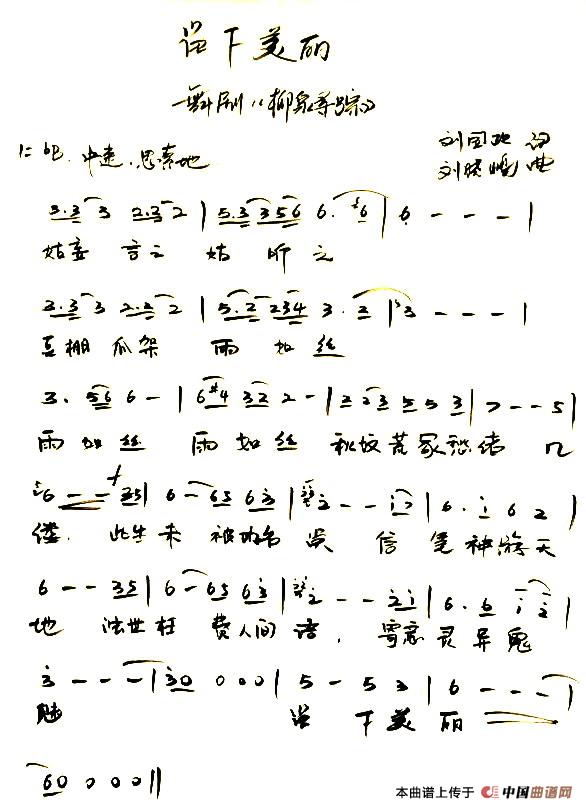 留下美丽
舞剧《柳泉寻踪》
1=bB 中速、思索地
刘国 词
刘晓 曲
3.3 3 2.3 2 | 5.3 356 6. 6 | 6 - - - |
姑妄言之 姑听之
3.3 3 2.2 2 | 5.2 234 3. 2 | 3 - - - |
豆棚瓜架 雨如丝
3. 56 6 - | 6#4 32 2 - | 2 23 5 5 3 | 7 - - 5 |
雨如丝 雨如丝 秋坟荒冢愁绪 几
6 - - 35 | 6 - 65 63 | 2 - - 17 | 6. 1 6 2 |
缕. 此生未被功名误 信笔神游天
6 - - 35 | 6 - 65 63 | 2 - - 21 | 6. 6 1 2 |
地 浊世枉费人间语, 寄意灵异鬼
3 - - - | 30 0 0 0 | 5 - 5 3 | 6 - - - |
魅 留下美丽
60 0 0 0 ||
本曲谱上传于 中国曲谱网